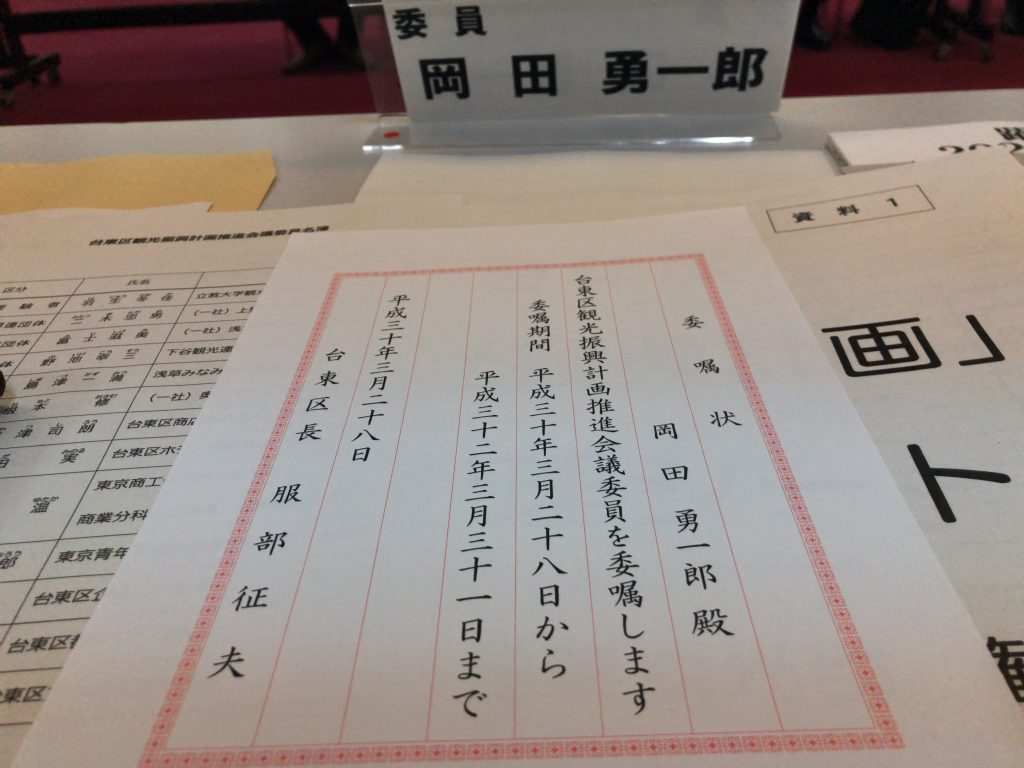 委員
岡田 勇一郎
資料1
画」
ト
委嘱状
岡田勇一郎殿
台東区観光振興計画推進会議委員を委嘱します
委嘱期間 平成三十年三月二十八日から
平成三十二年三月三十一日まで
平成三十年三月二十八日
台東区長 服部征夫
台東区観光振興計画推進会議委員名簿
区分 氏名
立教大学観光
(一社)上野
(一社)浅
下谷観光連
浅草みなみ
(一社)
津司朗 台東区商店
実 台東区ホテ
温 東京商工
商業分科
郎 東京青年
台東区
台東区
台東区